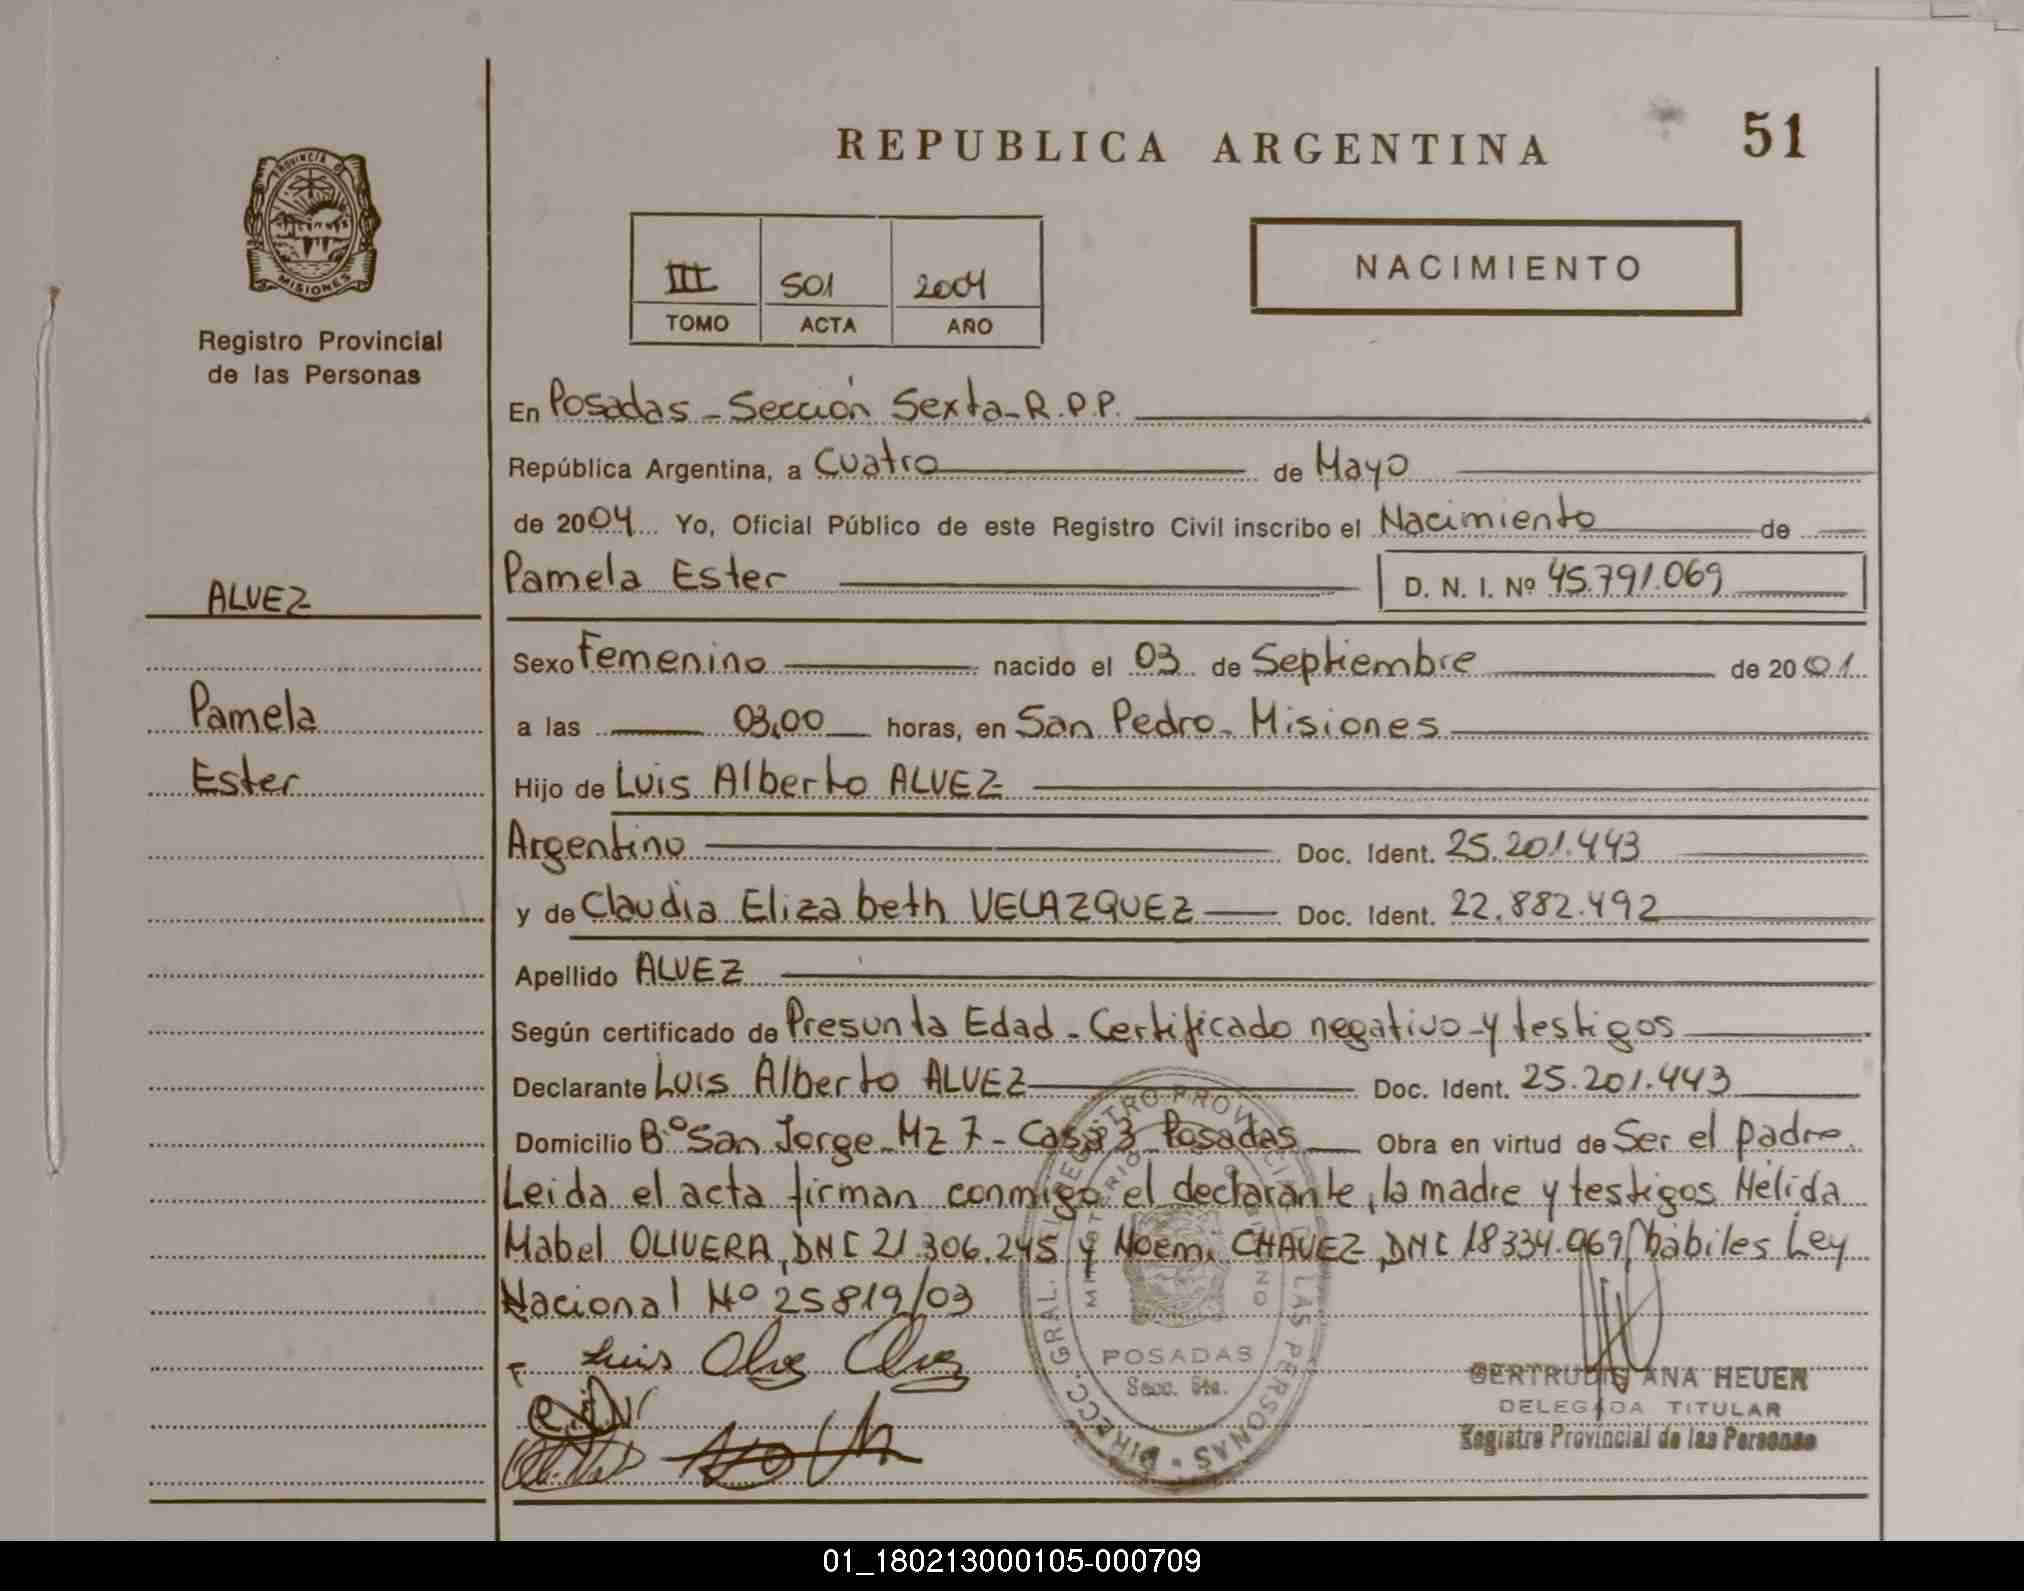 REPUBLICA ARGENTINA
51
PROVINCIA DE
MISIONES
Registro Provincial
de las Personas
III
501
2004
TOMO
ACTA
AÑO
NACIMIENTO
En Posadas - Sección Sexta - R.P.P.
República Argentina, a Cuatro de Mayo
de 2004 Yo, Oficial Público de este Registro Civil inscribo el Nacimiento de
Pamela Ester
D. N. I. Nº 45.791.069
ALVEZ
Pamela
Ester
Sexo Femenino nacido el 03 de Septiembre de 2001
a las 03,00 horas, en San Pedro - Misiones
Hijo de Luis Alberto ALVEZ
Argentino Doc. Ident. 25.201.443
y de Claudia Elizabeth VELAZQUEZ Doc. Ident. 22.882.492
Apellido ALVEZ
Según certificado de Presunta Edad - Certificado negativo - y testigos
Declarante Luis Alberto ALVEZ Doc. Ident. 25.201.443
Domicilio Bº San Jorge - Mz 7 - Casa 3 Posadas Obra en virtud de Ser el padre
Leida el acta firman conmigo el declarante, la madre y testigos Nélida
Mabel OLIVERA, DNI 21.306.245 y Noemi CHAVEZ, DNI 18334.069, habiles Ley
Nacional Nº 25819/03
Luis
DIRECC. GRAL. DEL REGISTRO PROVINCIAL DE LAS PERSONAS
MINISTERIO DE GOBIERNO
POSADAS
Secc. 6ta.
GERTRUDIS ANA HEUER
DELEGADA TITULAR
Registro Provincial de las Personas
01_180213000105-000709